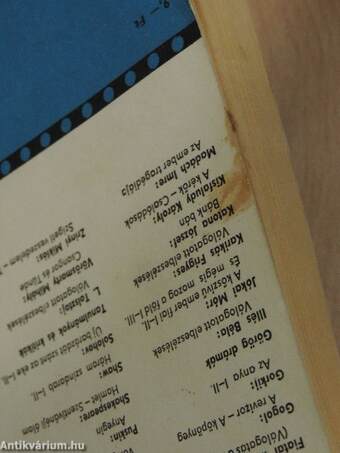 9,— Ft
Fiatal
(Válogatás
Gogol:
A revizor – A köpönyeg
Gorkij:
Az anya I–II.
Görög drámák
Illés Béla:
Válogatott elbeszélések
Jókai Mór:
A kőszívű ember fiai I–II.
És mégis mozog a föld I–III.
Karikás Frigyes:
Válogatott elbeszélések
Katona József:
Bánk bán
Kisfaludy Károly:
A kérők – Csalódások
Madách Imre:
Az ember tragédiája
Puskin:
Anyegin
Shakespeare:
Hamlet – Szentivánéji álom
Shaw:
Három színdarab I–II.
Solohov:
Új barázdát szánt az eke I–II.
Tanulmányok és kritikák
L. Tolsztoj:
Válogatott elbeszélések
Vörösmarty Mihály:
Csongor és Tünde
Zrínyi Miklós:
Szigeti veszedelem
Antikvárium.hu